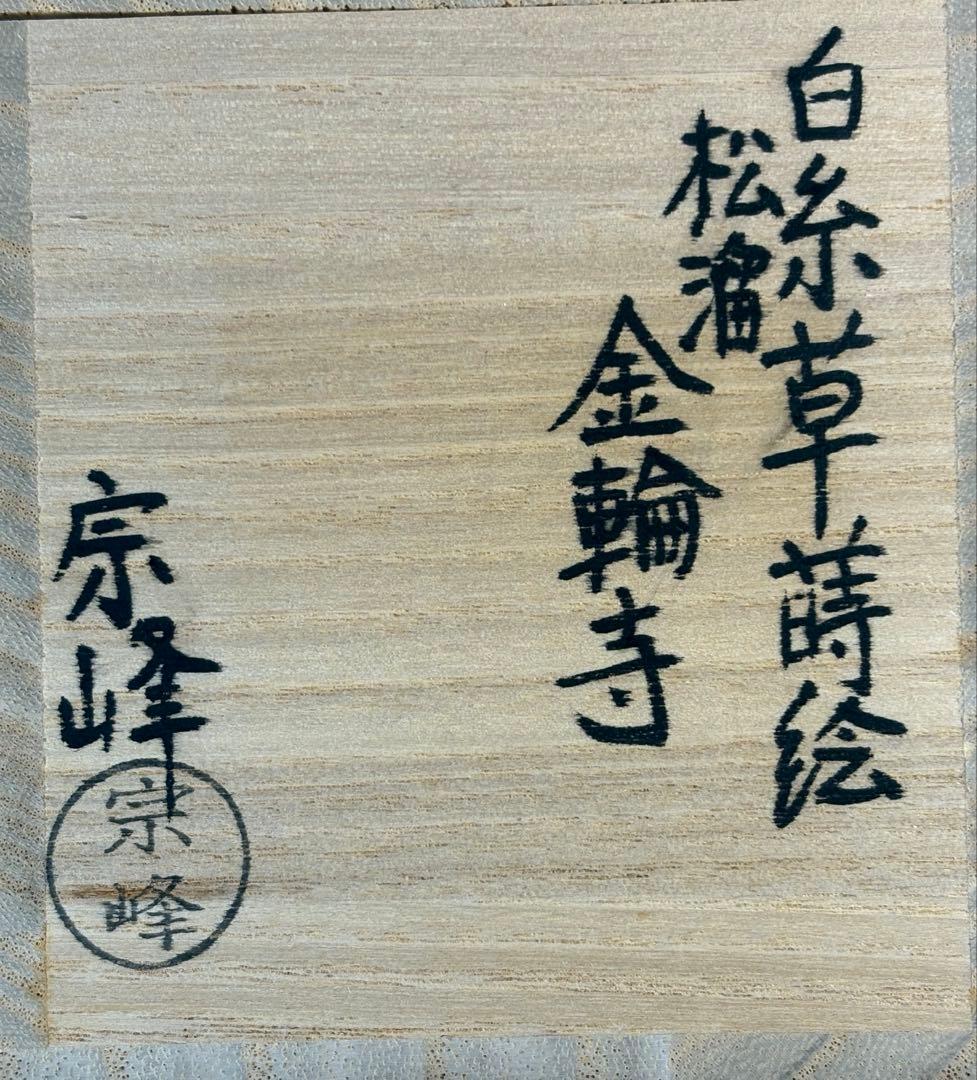 白糸草蒔絵
松溜
金輪寺
宗峰
宗峰